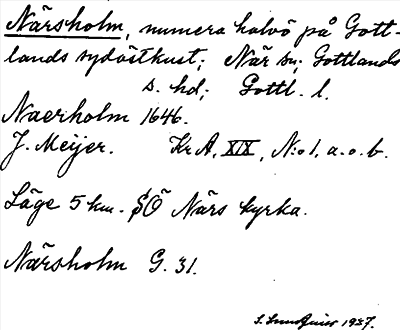 Närsholm, numera halvö på Gott-
lands sydöstkust; När sn; Gottlands
s. hd; Gottl. l.
Naerholm 1646.
J. Meijer. Kr A, XIX, N:o 1, a.o.b.
Läge 5 km. SÖ Närs kyrka.
Närsholm G. 31.
S. 1937.